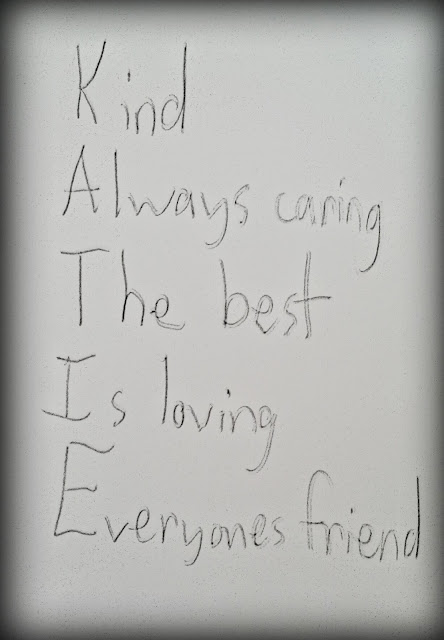 Kind
Always caring
The best
Is loving
Everyones friend